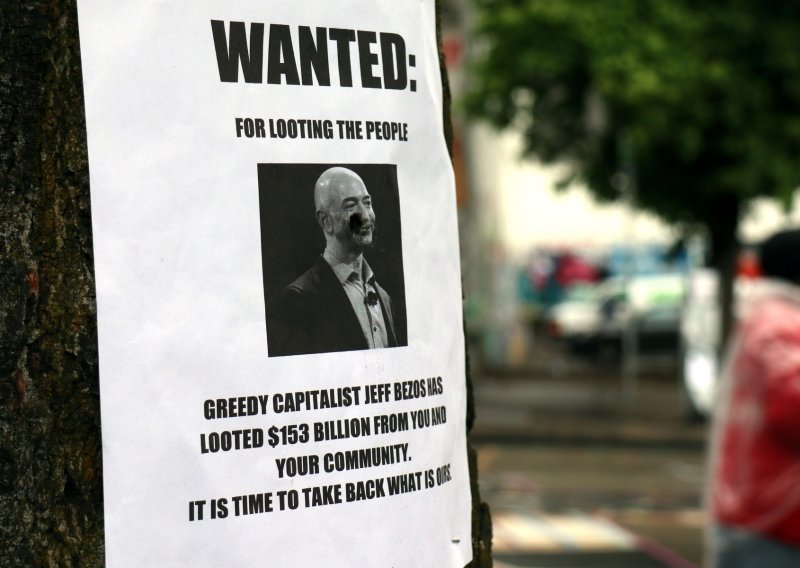 WANTED:
FOR LOOTING THE PEOPLE
GREEDY CAPITALIST JEFF BEZOS HAS
LOOTED $153 BILLION FROM YOU AND
YOUR COMMUNITY.
IT IS TIME TO TAKE BACK WHAT IS OURS.